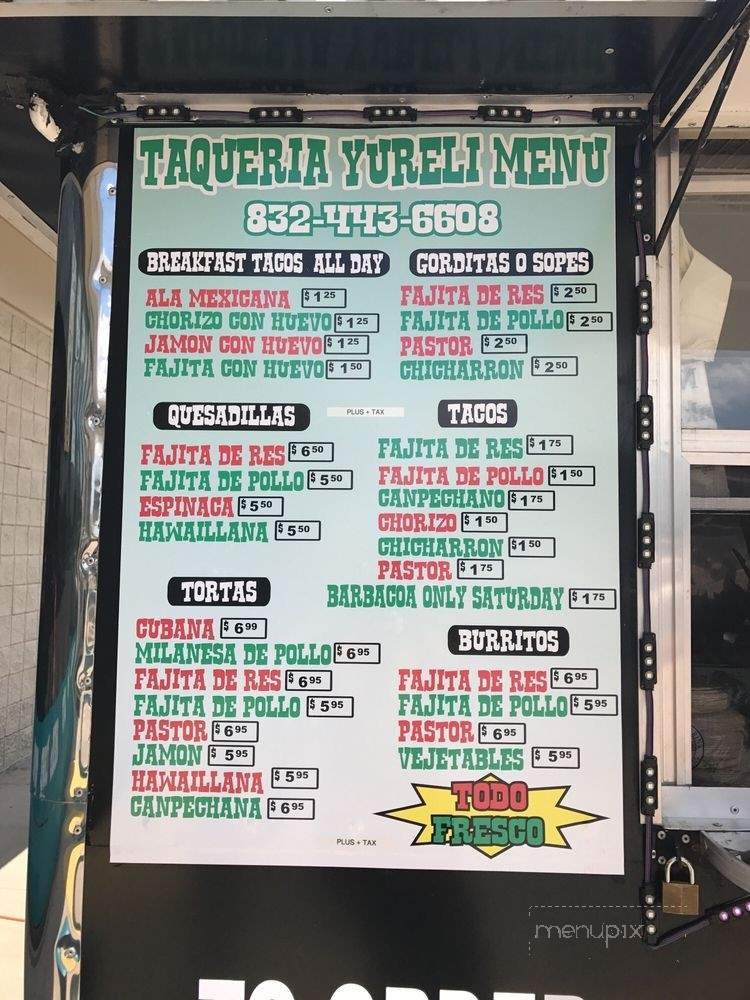 TAQUERIA YURELI MENU
832-443-6608
BREAKFAST TACOS ALL DAY
ALA MEXICANA $1 25
CHORIZO CON HUEVO $1 25
JAMON CON HUEVO $1 25
FAJITA CON HUEVO $1 50
GORDITAS O SOPES
FAJITA DE RES $2 50
FAJITA DE POLLO $2 50
PASTOR $2 50
CHICHARRON $2 50
QUESADILLAS
PLUS + TAX
FAJITA DE RES $6 50
FAJITA DE POLLO $5 50
ESPINACA $5 50
HAWAILLANA $5 50
TACOS
FAJITA DE RES $1 75
FAJITA DE POLLO $1 50
CANPECHANO $1 75
CHORIZO $1 50
CHICHARRON $1 50
PASTOR $1 75
BARBACOA ONLY SATURDAY $1 75
TORTAS
CUBANA $6 99
MILANESA DE POLLO $6 95
FAJITA DE RES $6 95
FAJITA DE POLLO $5 95
PASTOR $6 95
JAMON $5 95
HAWAILLANA $5 95
CANPECHANA $6 95
BURRITOS
FAJITA DE RES $6 95
FAJITA DE POLLO $5 95
PASTOR $6 95
VEJETABLES $5 95
TODO
FRESCO
PLUS + TAX
menupix
TO ORDER